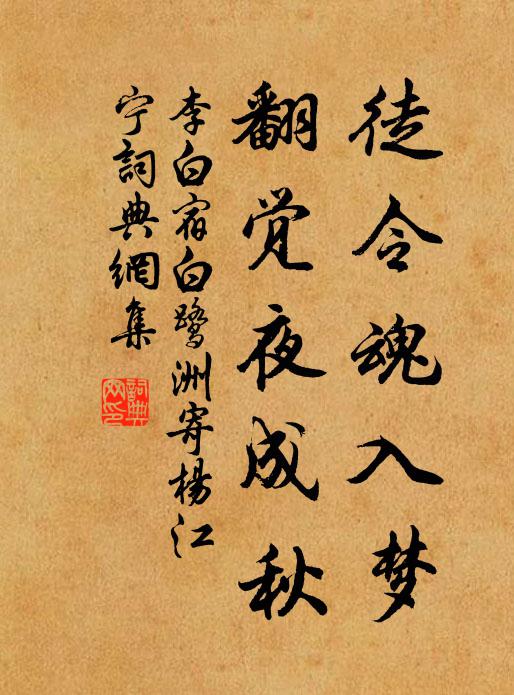 徒令魂入梦
翻觉夜成秋
李白宿白鹭洲寄杨江
宁词典网集
詞典网印